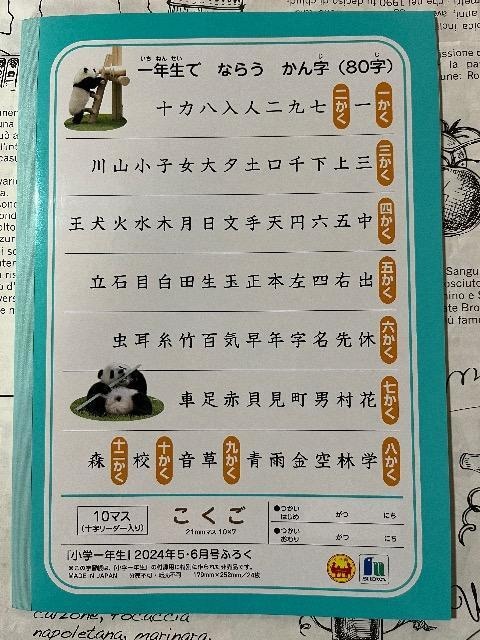 いち ねん せい じ じ
一年生で ならう かん字(80字)
一かく 一 二かく 七 九 二 人 入 八 力 十
三かく 三 上 下 千 口 土 夕 大 女 子 小 山 川
四かく 中 五 六 円 天 手 文 日 月 木 水 火 犬 王
五かく 出 右 四 左 本 正 玉 生 田 白 目 石 立
六かく 休 先 名 字 年 早 気 百 竹 糸 耳 虫
七かく 花 村 男 町 見 貝 赤 足 車
八かく 学 林 空 金 雨 青 九かく 草 音 十かく 校 十二かく 森
10マス
(十字リーダー入り)
こくご
21mmマス 10×7
●つかいはじめ がつ にち
●つかいおわり がつ にち
『小学一年生』2024年5・6月号ふろく
※この学習帳は、『小学一年生』の付録用に特別に作られた非売品です。
MADE IN JAPAN 分売不可・転売不可 179mm×252mm/24枚
SHOWA
calzone, focaccia
napoletana, marinara.